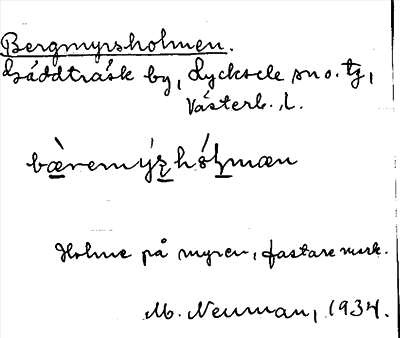 Bergmyrsholmen.
Gäddträsk by, Lycksele sn o. tg,
Västerb. l.
bæ̀remýr̥shól̥mæn
Holme på myren, fastare mark.
M. Neuman, 1934.